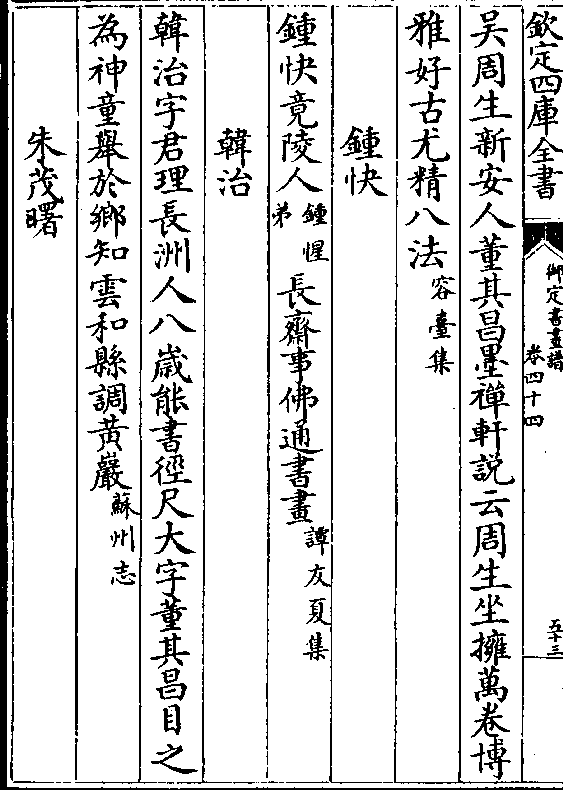 欽定四庫全書
御定書畫譜
卷四十四
五十三
吴周生新安人董其昌墨禪軒説云周生坐擁萬卷博
雅好古尤精八法容臺集
鍾快
鍾快竟陵人鍾惺弟長齋事佛通書畫譚友夏集
韓治
韓治字君理長洲人八歲能書徑尺大字董其昌目之
為神童舉於鄉知雲和縣調黄巖蘇州志
朱茂曙